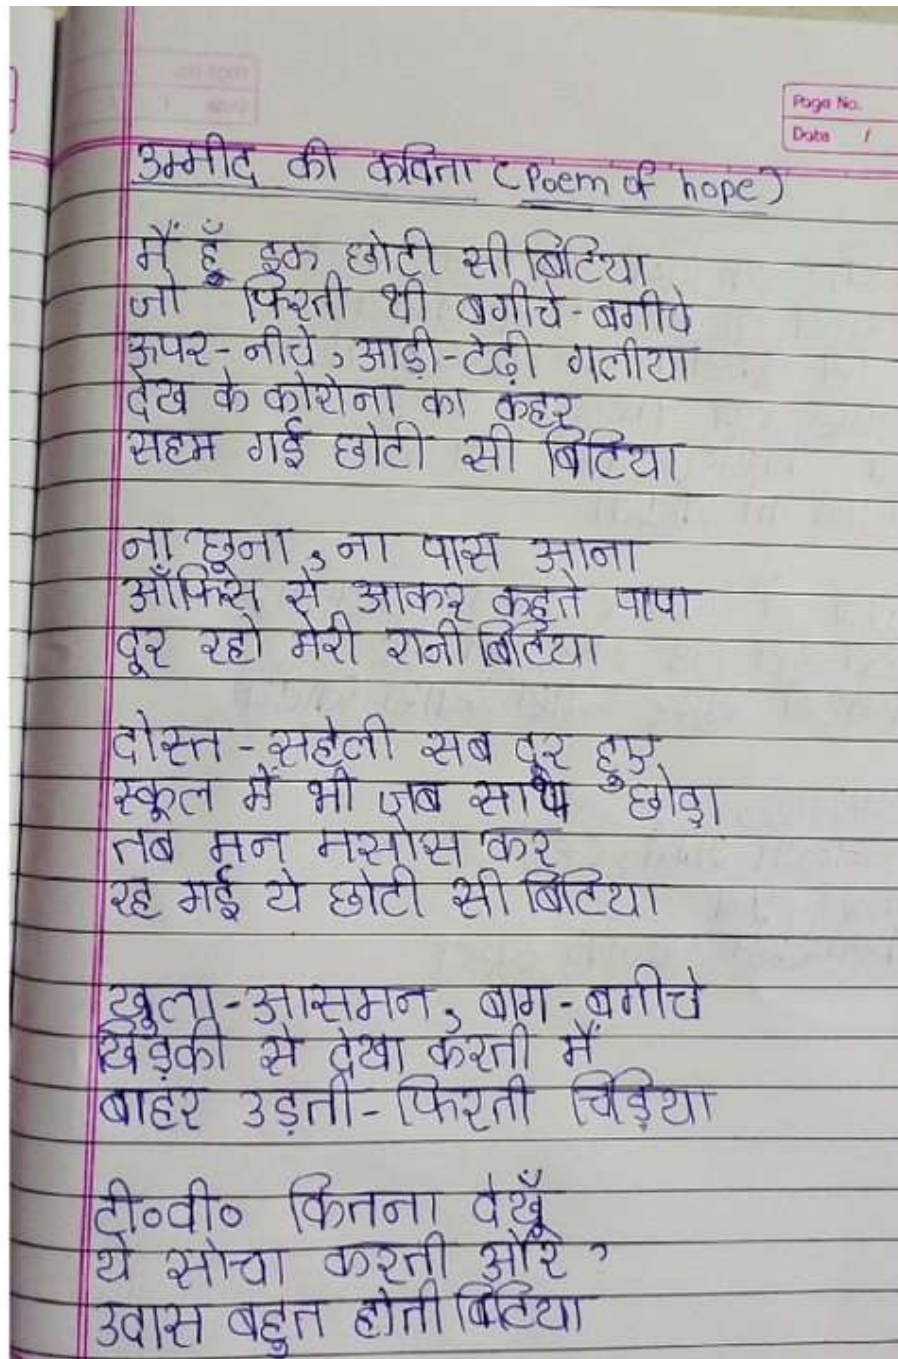 Page No.
Date /
उम्मीद की कविता (Poem of hope)
मैं हूँ इक छोटी सी बिटिया
जो फिरती थी बगीचे-बगीचे
ऊपर-नीचे, आड़ी-टेढ़ी गलीया
देख के कोरोना का कहर
सहम गई छोटी सी बिटिया
ना छूना, ना पास आना
ऑफिस से आकर कहते पापा
दूर रहो मेरी रानी बिटिया
दोस्त-सहेली सब दूर हुए
स्कूल में भी जब साथ छोड़ा
तब मन मसोस कर
रह गई ये छोटी सी बिटिया
खुला-आसमन, बाग-बगीचे
खिड़की से देखा करती मैं
बाहर उड़ती-फिरती चिड़िया
टी०वी० कितना देखूँ
ये सोचा करती और,
उदास बहुत होती बिटिया